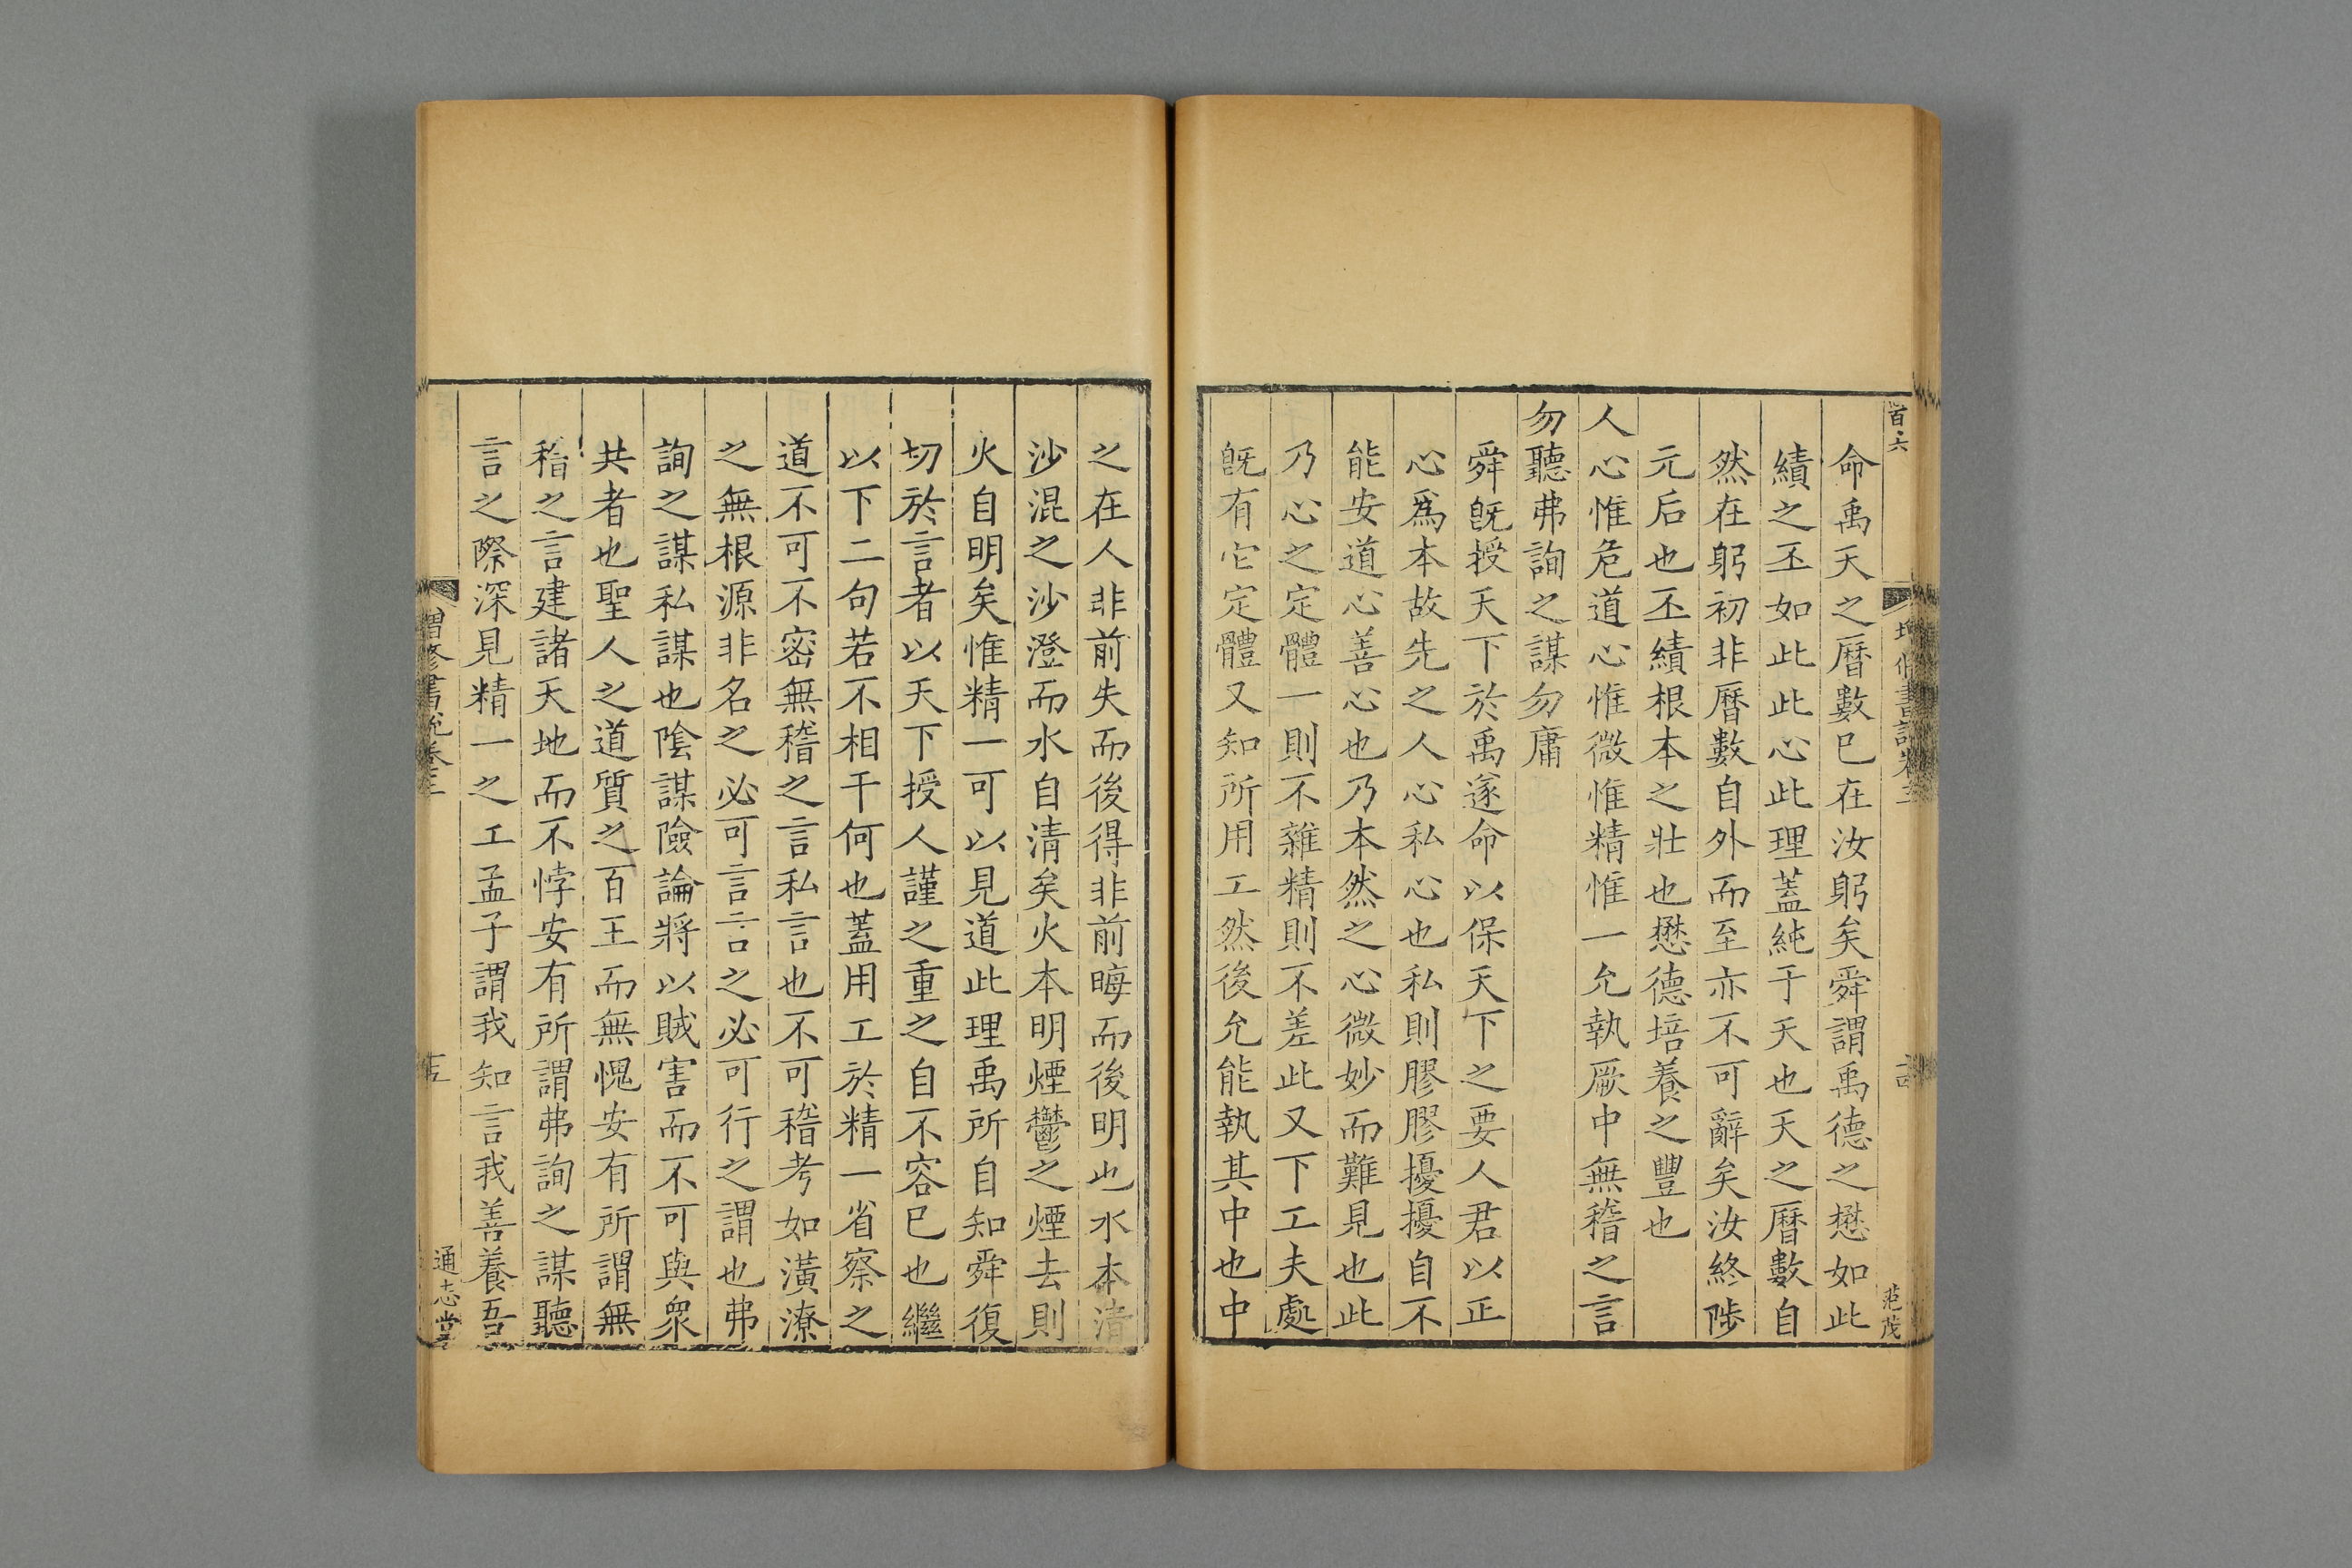 命禹天之曆數已在汝躬矣舜謂禹德之懋如此
績之丕如此此心此理蓋純于天也天之曆數自
然在躬初非曆數自外而至亦不可辭矣汝終陟
元后也丕績根本之壯也懋德培養之豐也
人心惟危道心惟微惟精惟一允執厥中無稽之言
勿聽弗詢之謀勿庸
舜旣授天下於禹遂命以保天下之要人君以正
心爲本故先之人心私心也私則膠膠擾擾自不
能安道心善心也乃本然之心微妙而難見也此
乃心之定體一則不雜精則不差此又下工夫處
旣有它定體又知所用工然後允能執其中也中
之在人非前失而後得非前晦而後明也水本清
沙混之沙澄而水自清矣火本明煙鬱之煙去則
火自明矣惟精一可以見道此理禹所自知舜復
切於言者以天下授人謹之重之自不容已也繼
以下二句若不相干何也蓋用工於精一省察之
道不可不密無稽之言私言也不可稽考如潢潦
之無根源非名之必可言言之必可行之謂也弗
詢之謀私謀也陰謀險論將以賊害而不可與衆
共者也聖人之道質之百王而無愧安有所謂無
稽之言建諸天地而不悖安有所謂弗詢之謀聽
言之際深見精一之工孟子謂我知言我善養吾
百六
增修書說卷三
范茂
增修書說卷三
通志堂